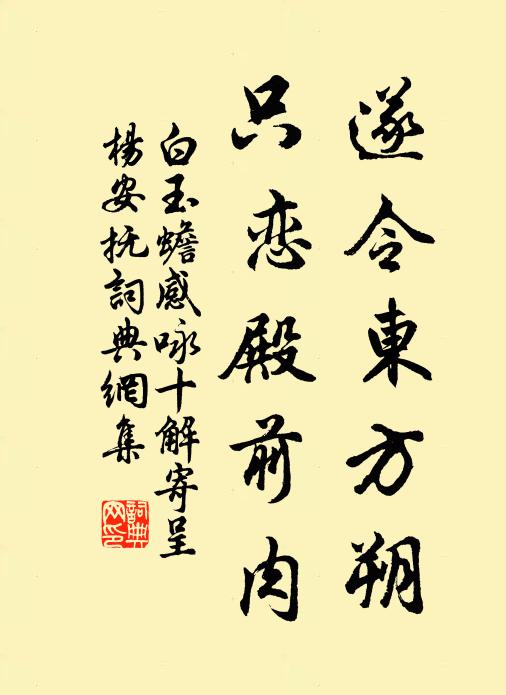 遂令東方朔
只恋殿前肉
白玉蟾感咏十解寄呈
楊安抚詞典網集
詞典网印